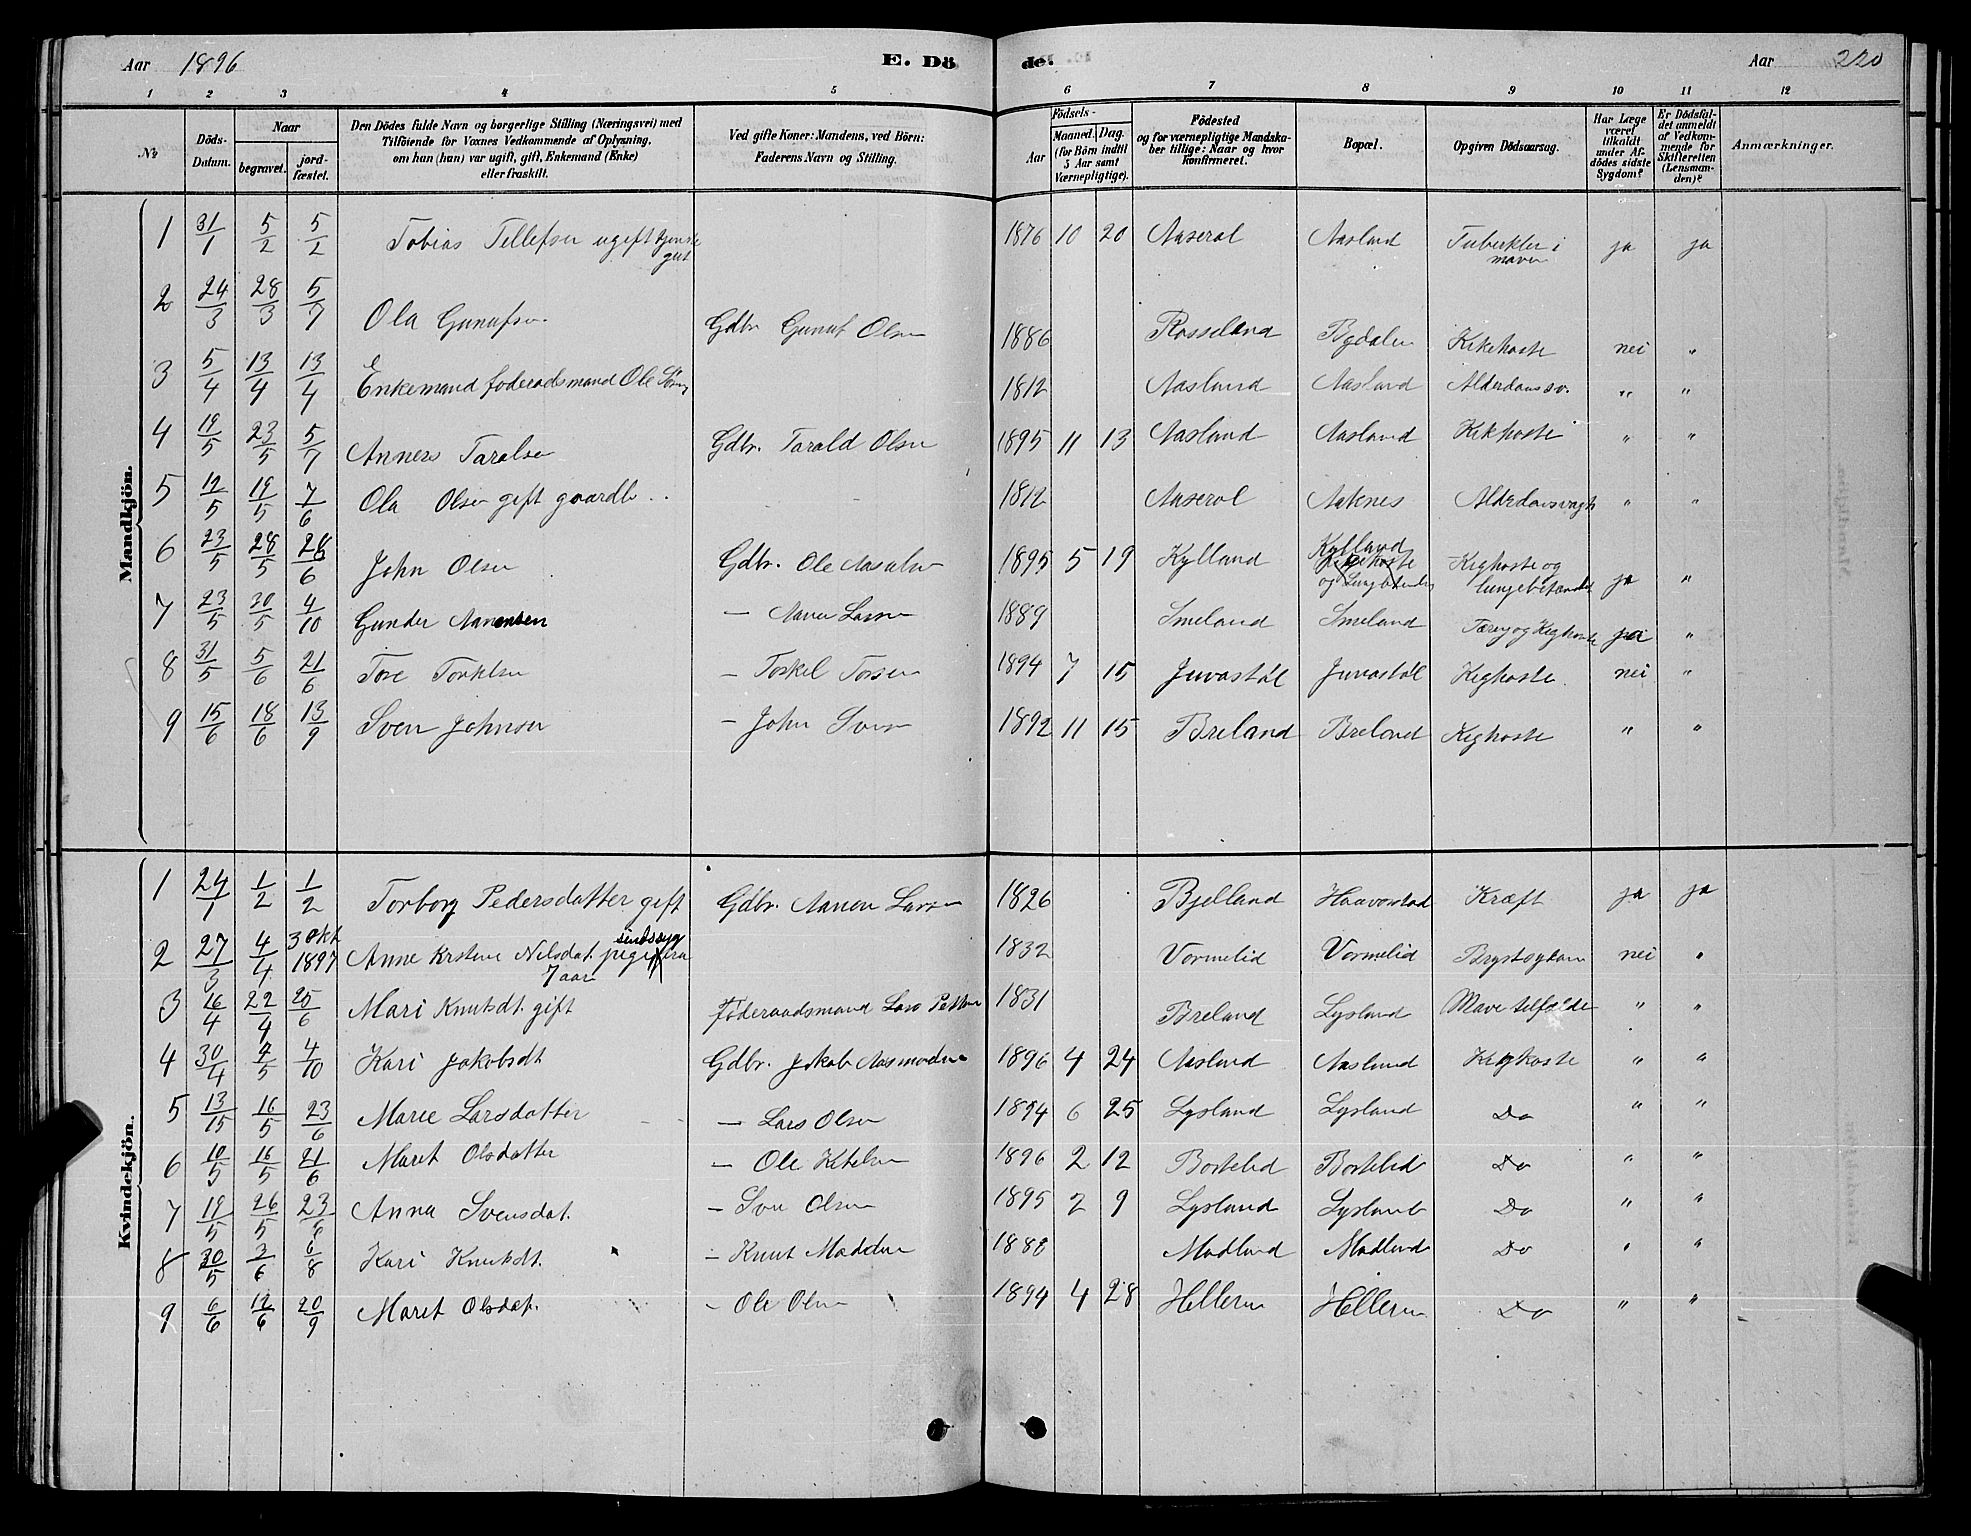 Aar 1896
E. Dö de.
Aar 220
1 2 3 4 5 6 7 8 9 10 11 12
No
Döds-Datum.
Naar
begravet.
jord-fæstet.
Den Dödes fulde Navn og borgerlige Stilling (Næringsvei) med
Tilföiende for Voxnes Vedkommende af Oplysning,
om han (hun) var ugift, gift, Enkemand (Enke)
eller fraskilt.
Ved gifte Koner: Mandens, ved Börn:
Faderens Navn og Stilling.
Födsels-
Aar
Maaned. Dag.
(for Börn indtil
5 Aar samt
Værnepligtige).
Födested
og for værnepligtige Mandska-
ber tillige: Naar og hvor
konfirmeret.
Bopæl.
Opgiven Dödsaarsag.
Har Læge
været
tilkaldt
under Af-
dödes sidste
Sygdom?
Er Dödsfal-
det anmeldt
af Vedkom-
mende for
Skifteretten
(Lensman-
den)?
Anmærkninger.
Mandkjön.
1 31/1 5/2 5/2 Tobias Tellefsen ugift tjeneste gut 1876 10 20 Aaseral Aasland Tuberkler i maven ja ja
2 24/3 28/3 5/7 Ola Gunufsen Gdbr Gunuf Olsen 1886 Rosseland Bgdalen Kikehoste nei "
3 5/4 13/4 13/4 Enkemand föderaadsmand Ole 1812 Aasland Aasland " "
4 19/5 23/5 5/7 Anners Taralsen Gdbr. Tarald Olsen 1895 11 13 Aasland Aasland Kikhoste " "
5 12/5 19/5 7/6 Ola Olsen gift gaardb.. 1812 Aaseral Aaknes Alderdomsvagh " "
6 23/5 28/5 28/6 John Olsen Gdbr. Ole 1895 5 19 Kylland Kylland Kighoste og lungebetændel ja "
7 23/5 30/5 4/10 Gunder Aanensen — Aanen Larsen 1889 Smeland Smeland Tæring og Kighoste "
8 31/5 5/6 21/6 Tore Torkelsen — Torkel Torsen 1894 7 15 Juvastöl Juvastöl Kighoste nei "
9 15/6 18/6 13/9 Sven Johnsen — John Svensen 1892 11 15 Breland Breland Kighoste " "
Kvindekjön.
1 24/1 1/2 1/2 Torborg Pedersdatter gift Gdbr. Aanen Larsen 1826 Bjelland Haaverstad Kræft ja ja
2 27/3 4/4 3 okt 1897 Anne Kristine Nilsdat. sindssyg pige fra 7 aar 1832 Vormelid Vormelid Brystsygdom nei "
3 16/4 22/4 25/6 Mari Knutsdt. gift Föderaadsmand Lars 1831 Breland Lysland Mave tilfælde " "
4 30/4 4/5 4/10 Kari Jakobsdt Gdbr. Jakob Aasmundsen 1896 4 24 Aasland Aasland Kighoste " "
5 13/15 16/5 23/6 Marie Larsdatter — Lars Olsen 1894 6 25 Lysland Lysland Do " "
6 10/5 16/5 21/6 Maret Olsdatter — Ole Ketelsen 1896 2 12 Bortelid Bortelid Do " "
7 19/5 26/5 23/6 Anna Svensdat. — Sven Olsen 1895 2 9 Lysland Lysland Do " "
8 30/5 3/6 6/8 Kari Knutsdt. — Knut 1888 Modland Modland Do " "
9 6/6 12/6 20/9 Maret Olsdat. — Ole Olsen 1894 4 28 Helleren Helleren Do " "